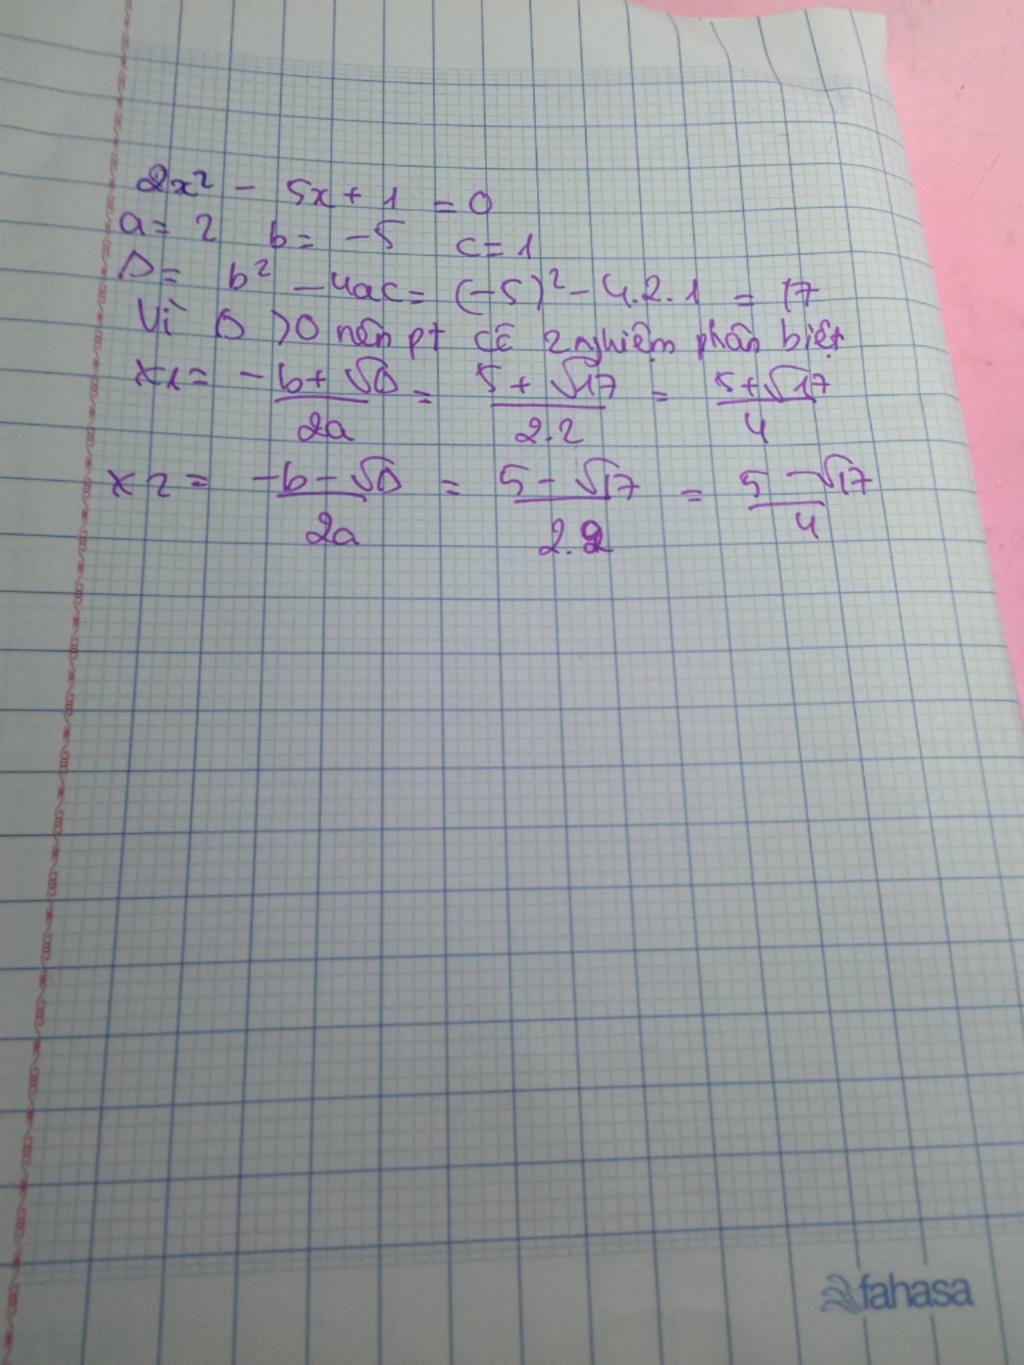 2x² - 5x + 1 = 0
a = 2 b = -5 c = 1
Δ = b² - 4ac = (-5)² - 4.2.1 = 17
Vì Δ >0 nên pt có 2 nghiệm phân biệt
x1 = (-b + √Δ)/2a = (5 + √17)/2.2 = (5 + √17)/4
x2 = (-b - √Δ)/2a = (5 - √17)/2.2 = (5 - √17)/4
fahasa